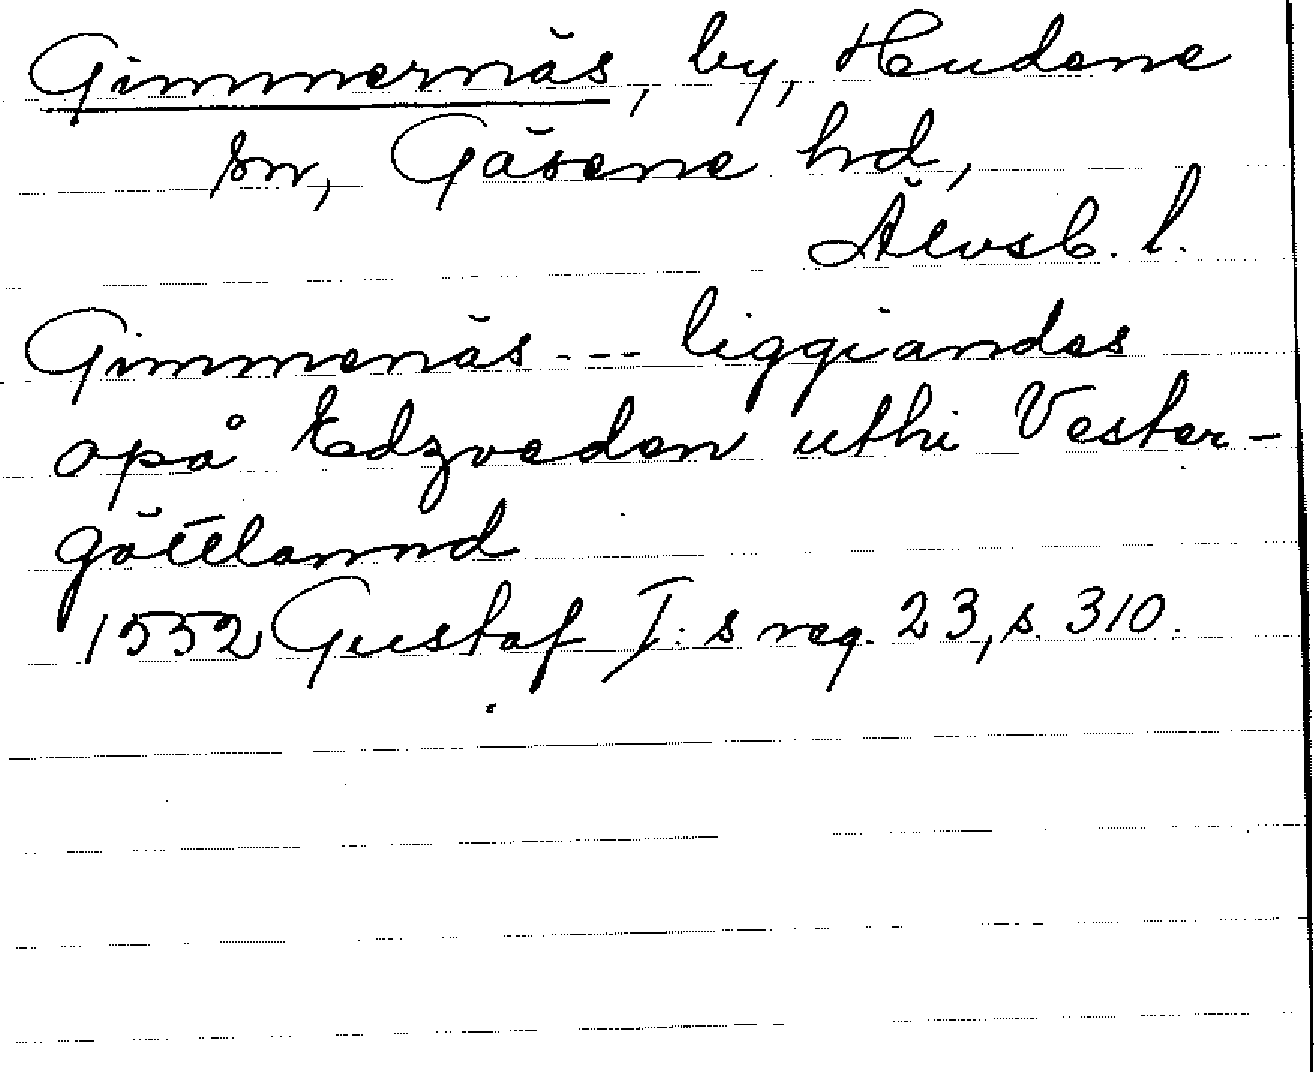 Gimmernäs, by, Hudene
sn, Gäsene hd,
Älvsb. l.
Gimmenäs --- liggiandes
opå Edzveden uthi Vester-
göttlannd
1552 Gustaf I:s reg. 23, s. 310.